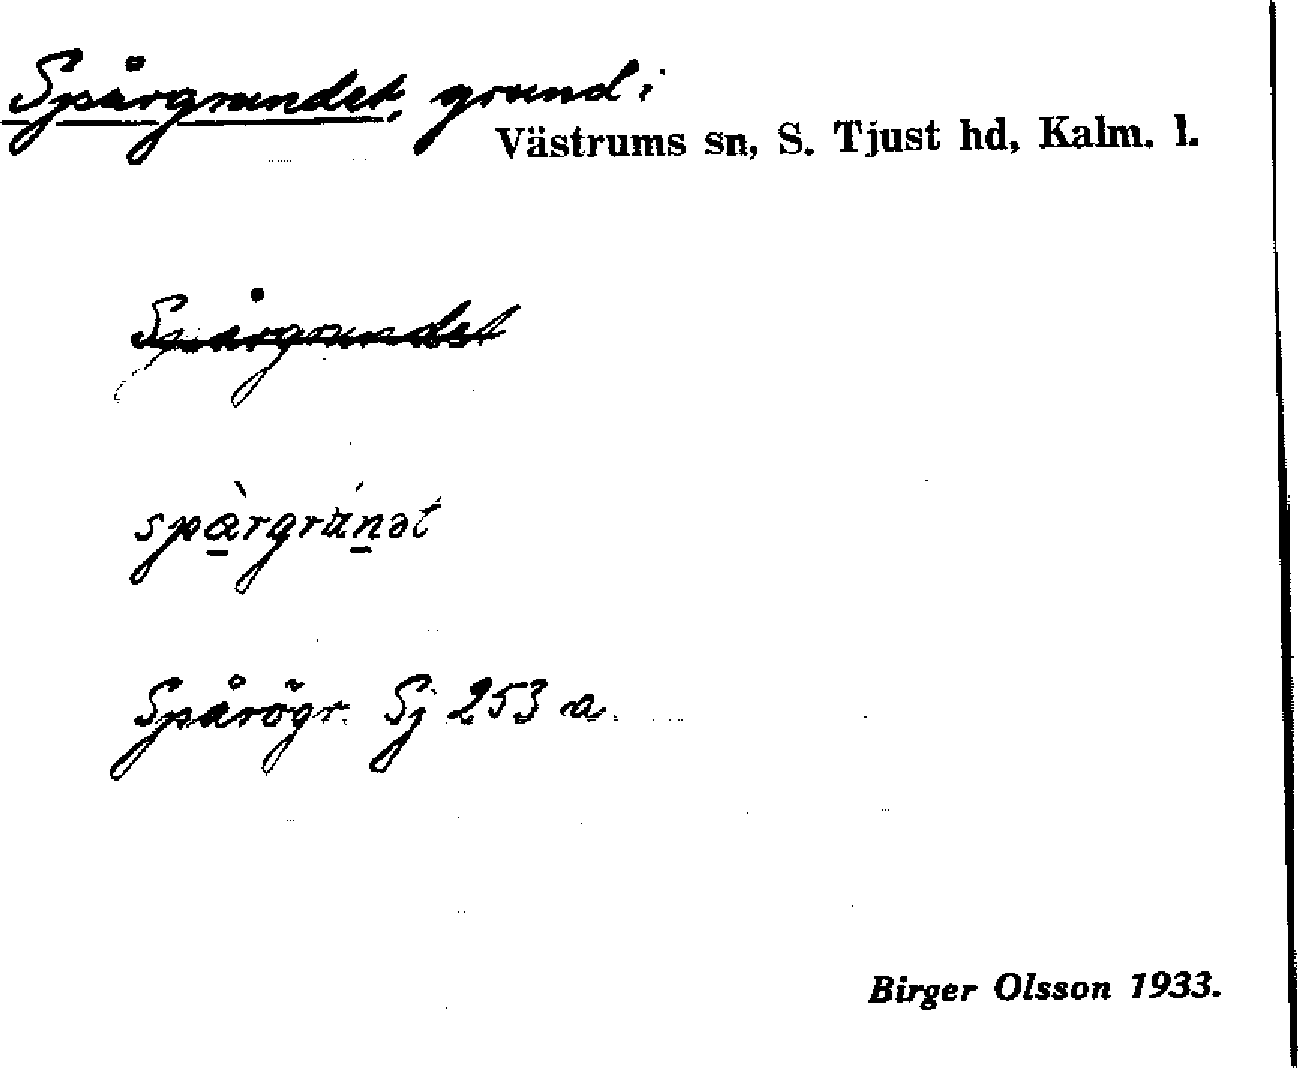 Spårgrundet, grund i
Västrums sn, S. Tjust hd, Kalm. l.
Spårgrundet
spàrgrúnət
Spårögr. Sj 253 a.
Birger Olsson 1933.